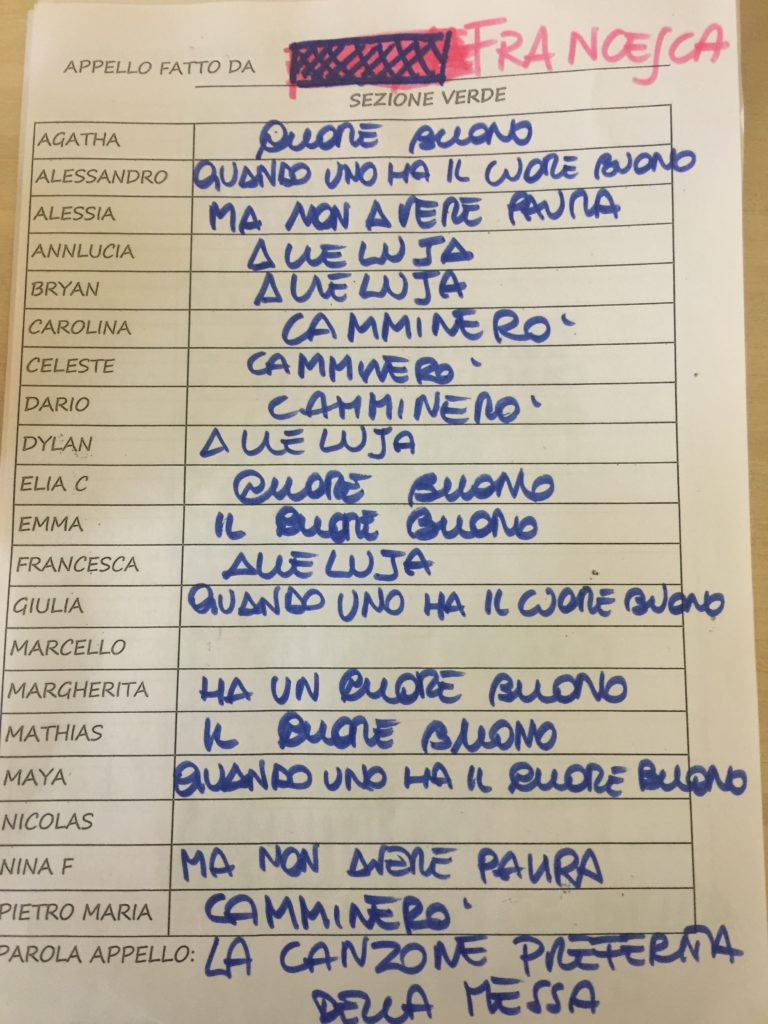 APPELLO FATTO DA FRANCESCA
SEZIONE VERDE
AGATHA QUORE BUONO
ALESSANDRO QUANDO UNO HA IL CUORE BUONO
ALESSIA MA NON AVERE PAURA
ANNLUCIA ALLELUJA
BRYAN ALLELUJA
CAROLINA CAMMINERO'
CELESTE CAMMINERO'
DARIO CAMMINERO'
DYLAN ALLELUJA
ELIA C QUORE BUONO
EMMA IL QUORE BUONO
FRANCESCA ALLELUJA
GIULIA QUANDO UNO HA IL CUORE BUONO
MARCELLO
MARGHERITA HA UN QUORE BUONO
MATHIAS IL QUORE BUONO
MAYA QUANDO UNO HA IL QUORE BUONO
NICOLAS
NINA F MA NON AVERE PAURA
PIETRO MARIA CAMMINERO'
PAROLA APPELLO: LA CANZONE PREFERITA
DELLA MESSA